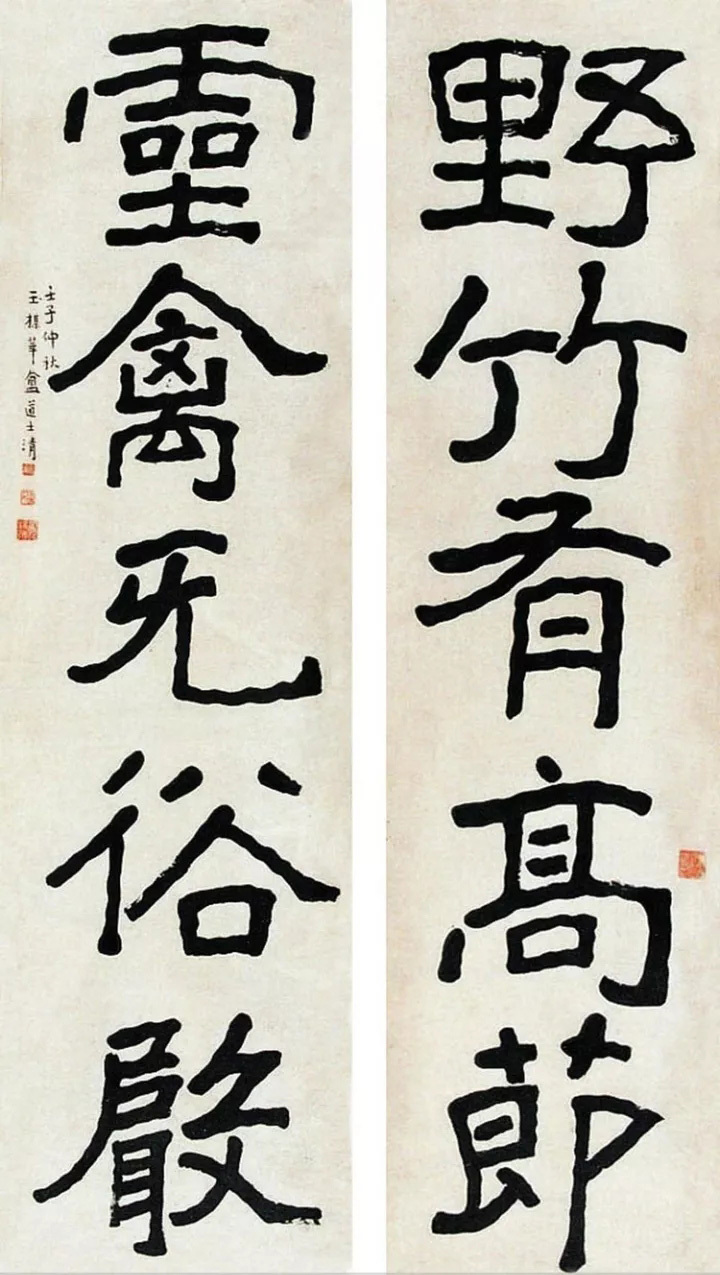 野竹有高節
靈禽无俗聲
壬子仲秋
玉梅華盦道士清